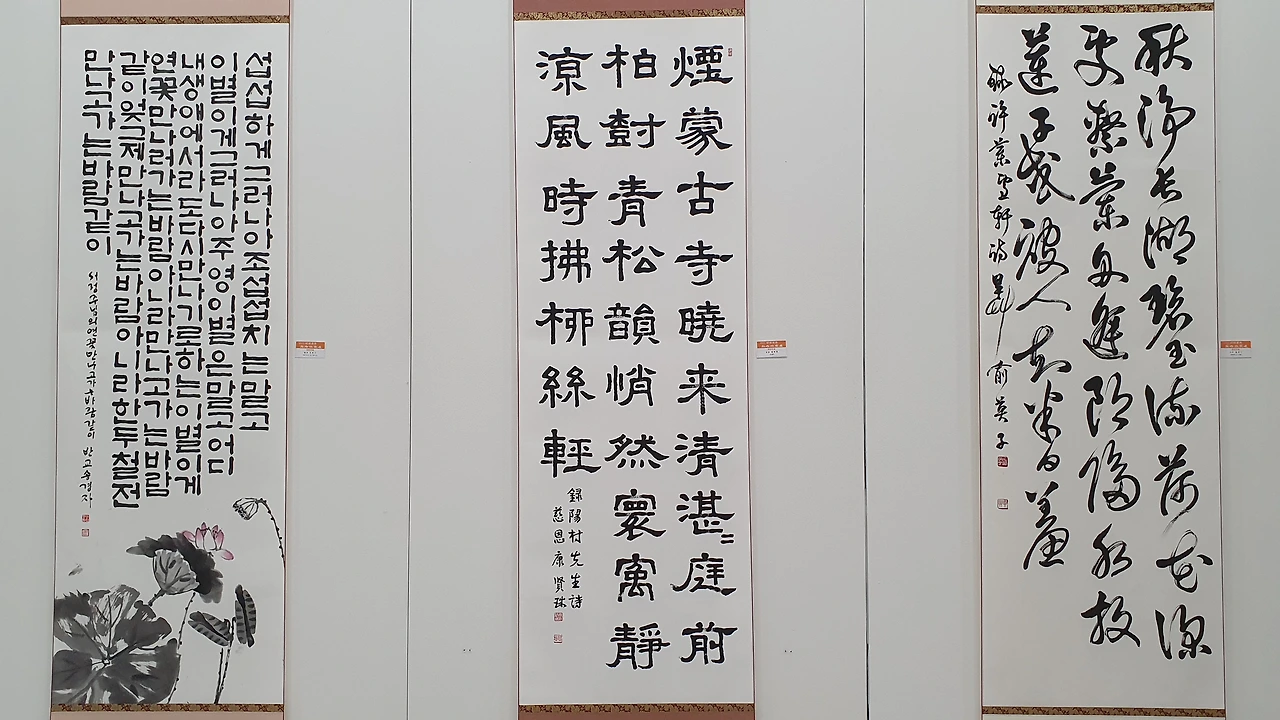 섭섭하게그러나아조섭섭치는말고
이별이게그러나아주영이별은말고어디
내생애에서라도다시만나기로하는이별이게
연꽃만나러가는바람아니라만나고가는바람
같이엊그제만나고가는바람아니라한두철전
만나고가는바람같이
서정주님의연꽃만나고가는바람같이
煙蒙古寺曉来清湛〻庭前
柏尌青松韻悄然寰寓靜
凉風時拂桺絲輕
錄陽村先生詩
慈恩康賢珠
秋淨長湖碧玉流荷花深
處繫蘭舟逢郎隔水投
蓮子或被人知半日羞
錄許蘭雪軒詩 俞英子